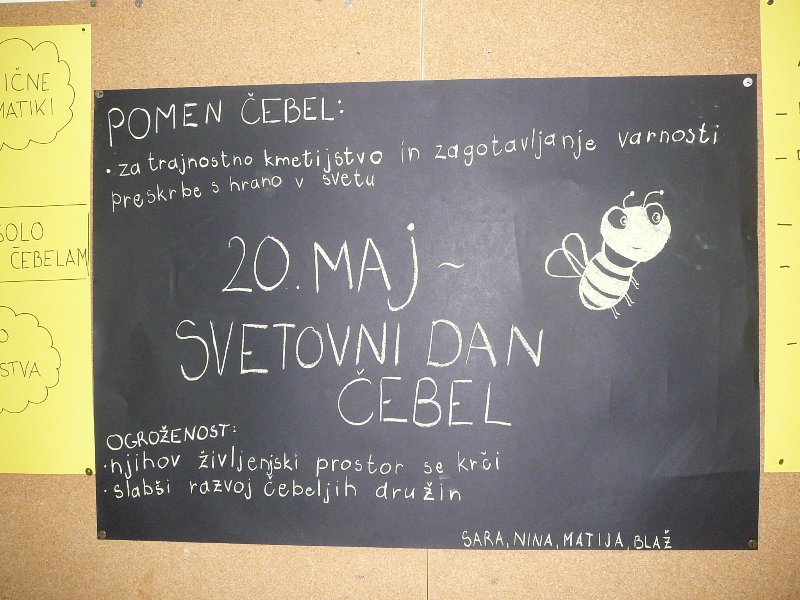 IČNE
MATIKI
SOLO
ČEBELAM
STVA
POMEN ČEBEL:
• za trajnostno kmetijstvo in zagotavljanje varnosti
preskrbe s hrano v svetu
20. MAJ ~
SVETOVNI DAN
ČEBEL
OGROŽENOST:
• njihov življenjski prostor se krči
• slabši razvoj čebeljih družin
SARA, NINA, MATIJA, BLAŽ